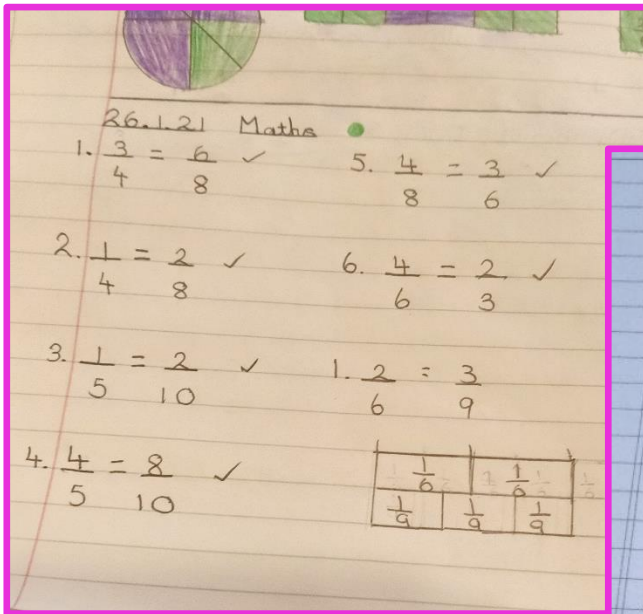 26.1.21 Maths
1. 3/4 = 6/8 ✓
2. 1/4 = 2/8 ✓
3. 1/5 = 2/10 ✓
4. 4/5 = 8/10 ✓
5. 4/8 = 3/6 ✓
6. 4/6 = 2/3 ✓
1. 2/6 = 3/9
1/6 1/6
1/9 1/9 1/9